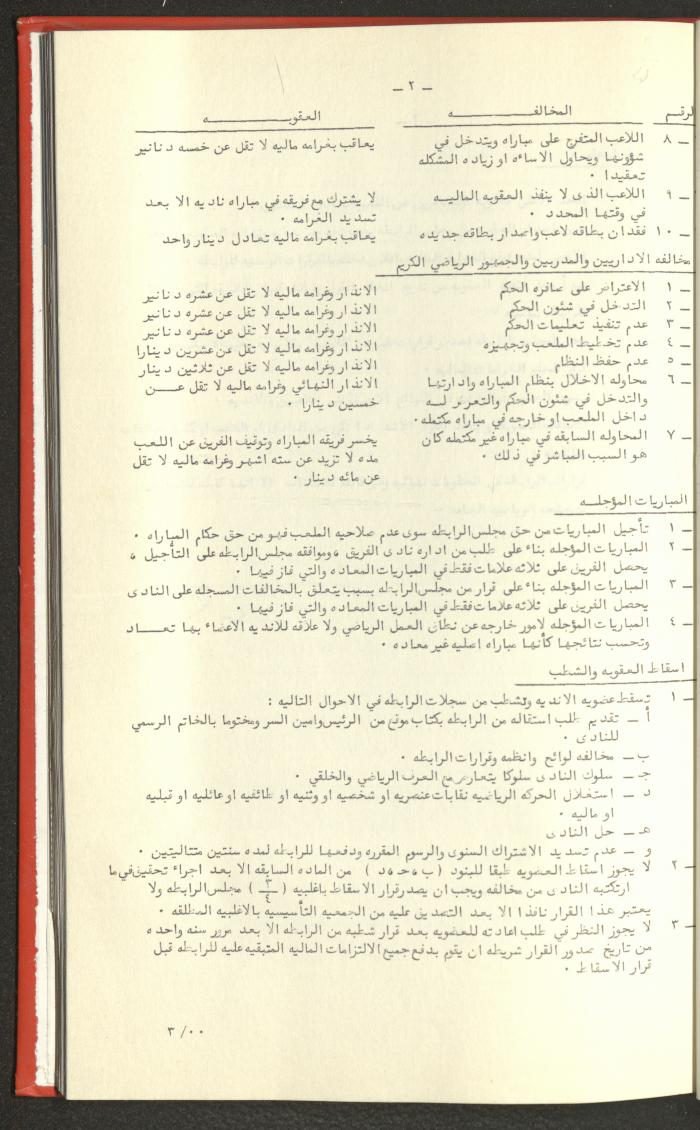 ـ ٢ ـ
الرقم المخالفـــــــه العقوبـــــــه
ـ ٨ اللاعب المتفرج على مباراه ويتدخل في يعاقب بغرامه ماليه لا تقل عن خمسه دنانير
شؤونها ويحاول الاساءه او زياده المشكله
تعقيدا ٠
ـ ٩ اللاعب الذى لا ينفذ العقوبه الماليـــه لا يشترك مع فريقه في مباراه ناديه الا بعد
في وقتها المحدد ٠ تسديد الغرامه ٠
ـ ١٠ فقدان بطاقه لاعب واصدار بطاقه جديده يعاقب بغرامه ماليه تعادل دينار واحد
مخالفه الاداريين والمدربين والجمهور الرياضي الكريم
ـ ١ الاعتراض على صافره الحكم الانذار وغرامه ماليه لا تقل عن عشره دنانير
ـ ٢ التدخل في شئون الحكم الانذار وغرامه ماليه لا تقل عن عشره دنانير
ـ ٣ عدم تنفيذ تعليمات الحكم الانذار وغرامه ماليه لا تقل عن عشره دنانير
ـ ٤ عدم تخطيط الملعب وتجهيزه الانذار وغرامه ماليه لا تقل عن عشرين دينارا
ـ ٥ عدم حفظ النظام الانذار وغرامه ماليه لا تقل عن ثلاثين دينار
ـ ٦ محاوله الاخلال بنظام المباراه وادارتها الانذار النهائي وغرامه ماليه لا تقل عـــن
والتدخل في شئون الحكم والتعرض لـــه خمسين دينارا ٠
داخل الملعب او خارجه في مباراه مكتمله ٠
ـ ٧ المحاوله السابقه في مباراه غير مكتمله كان يخسر فريقه المباراه وتوقيف الفريق عن اللعب
هو السبب المباشر في ذلك ٠ مده لا تزيد عن سته اشهر وغرامه ماليه لا تقل
عن مائه دينار ٠
المباريات المؤجلـــه
ـ ١ تأجيل المباريات من حق مجلس الرابطه سوى عدم صلاحيه الملعب فهو من حق حكام المباراه ٠
ـ ٢ المباريات المؤجله بناء على طلب من اداره نادى الفريق ، وموافقه مجلس الرابطه على التأجيل ،
يحصل الفريق على ثلاثه علامات فقط في المباريات المعاده والتي فاز فيها ٠
ـ ٣ المباريات المؤجله بناء على قرار من مجلس الرابطه بسبب يتعلق بالمخالفات المسجله على النادى
يحصل الفريق على ثلاثه علامات فقط في المباريات المعاده والتي فاز فيها ٠
ـ ٤ المباريات المؤجله لامور خارجه عن نطاق العمل الرياضي ولا علاقه للانديه الاعضاء بها تعـــاد
وتحسب نتائجها كأنها مباراه اصليه غير معاده ٠
اسقاط العقوبه والشطب
ـ ١ تسقط عضويه الانديه وتشطب من سجلات الرابطه في الاحوال التاليه :
أ ـ تقديم طلب استقاله من الرابطه بكتاب موقع من الرئيس وامين السر ومختوما بالخاتم الرسمي
للنادى ٠
ب ـ مخالفه لوائح وانظمه وقرارات الرابطه ٠
جـ ـ سلوك النادى سلوكا يتعارض مع العرف الرياضي والخلقي ٠
د ـ استغلال الحركه الرياضيه نقابات عنصريه او شخصيه او وثنيه او طائفيه او عائليه او قبليه
او ماليه ٠
هـ ـ حل النادى
و ـ عدم تسديد الاشتراك السنوى والرسوم المقرره ودفعها للرابطه لمده سنتين متتاليتين ٠
ـ ٢ لا يجوز اسقاط العضويه طبقا للبنود ( ب ، جـ ، د ) من الماده السابقه الا بعد اجراء تحقيق في ما
ارتكبته النادى من مخالفه ويجب ان يصدر قرار الاسقاط باغلبيه ( ٣/٤ ) مجلس الرابطه ولا
يعتبر هذا القرار نافذا الا بعد التصديق عليه من الجمعيه التأسيسيه بالاغلبيه المطلقه ٠
ـ ٣ لا يجوز النظر في طلب اعادته للعضويه بعد قرار شطبه من الرابطه الا بعد مرور سنه واحده
من تاريخ صدور القرار شريطه ان يقوم بدفع جميع الالتزامات الماليه المتبقيه عليه للرابطه قبل
قرار الاسقاط ٠
٣/٠٠